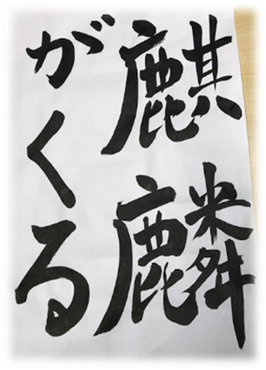 麒麟
がくる